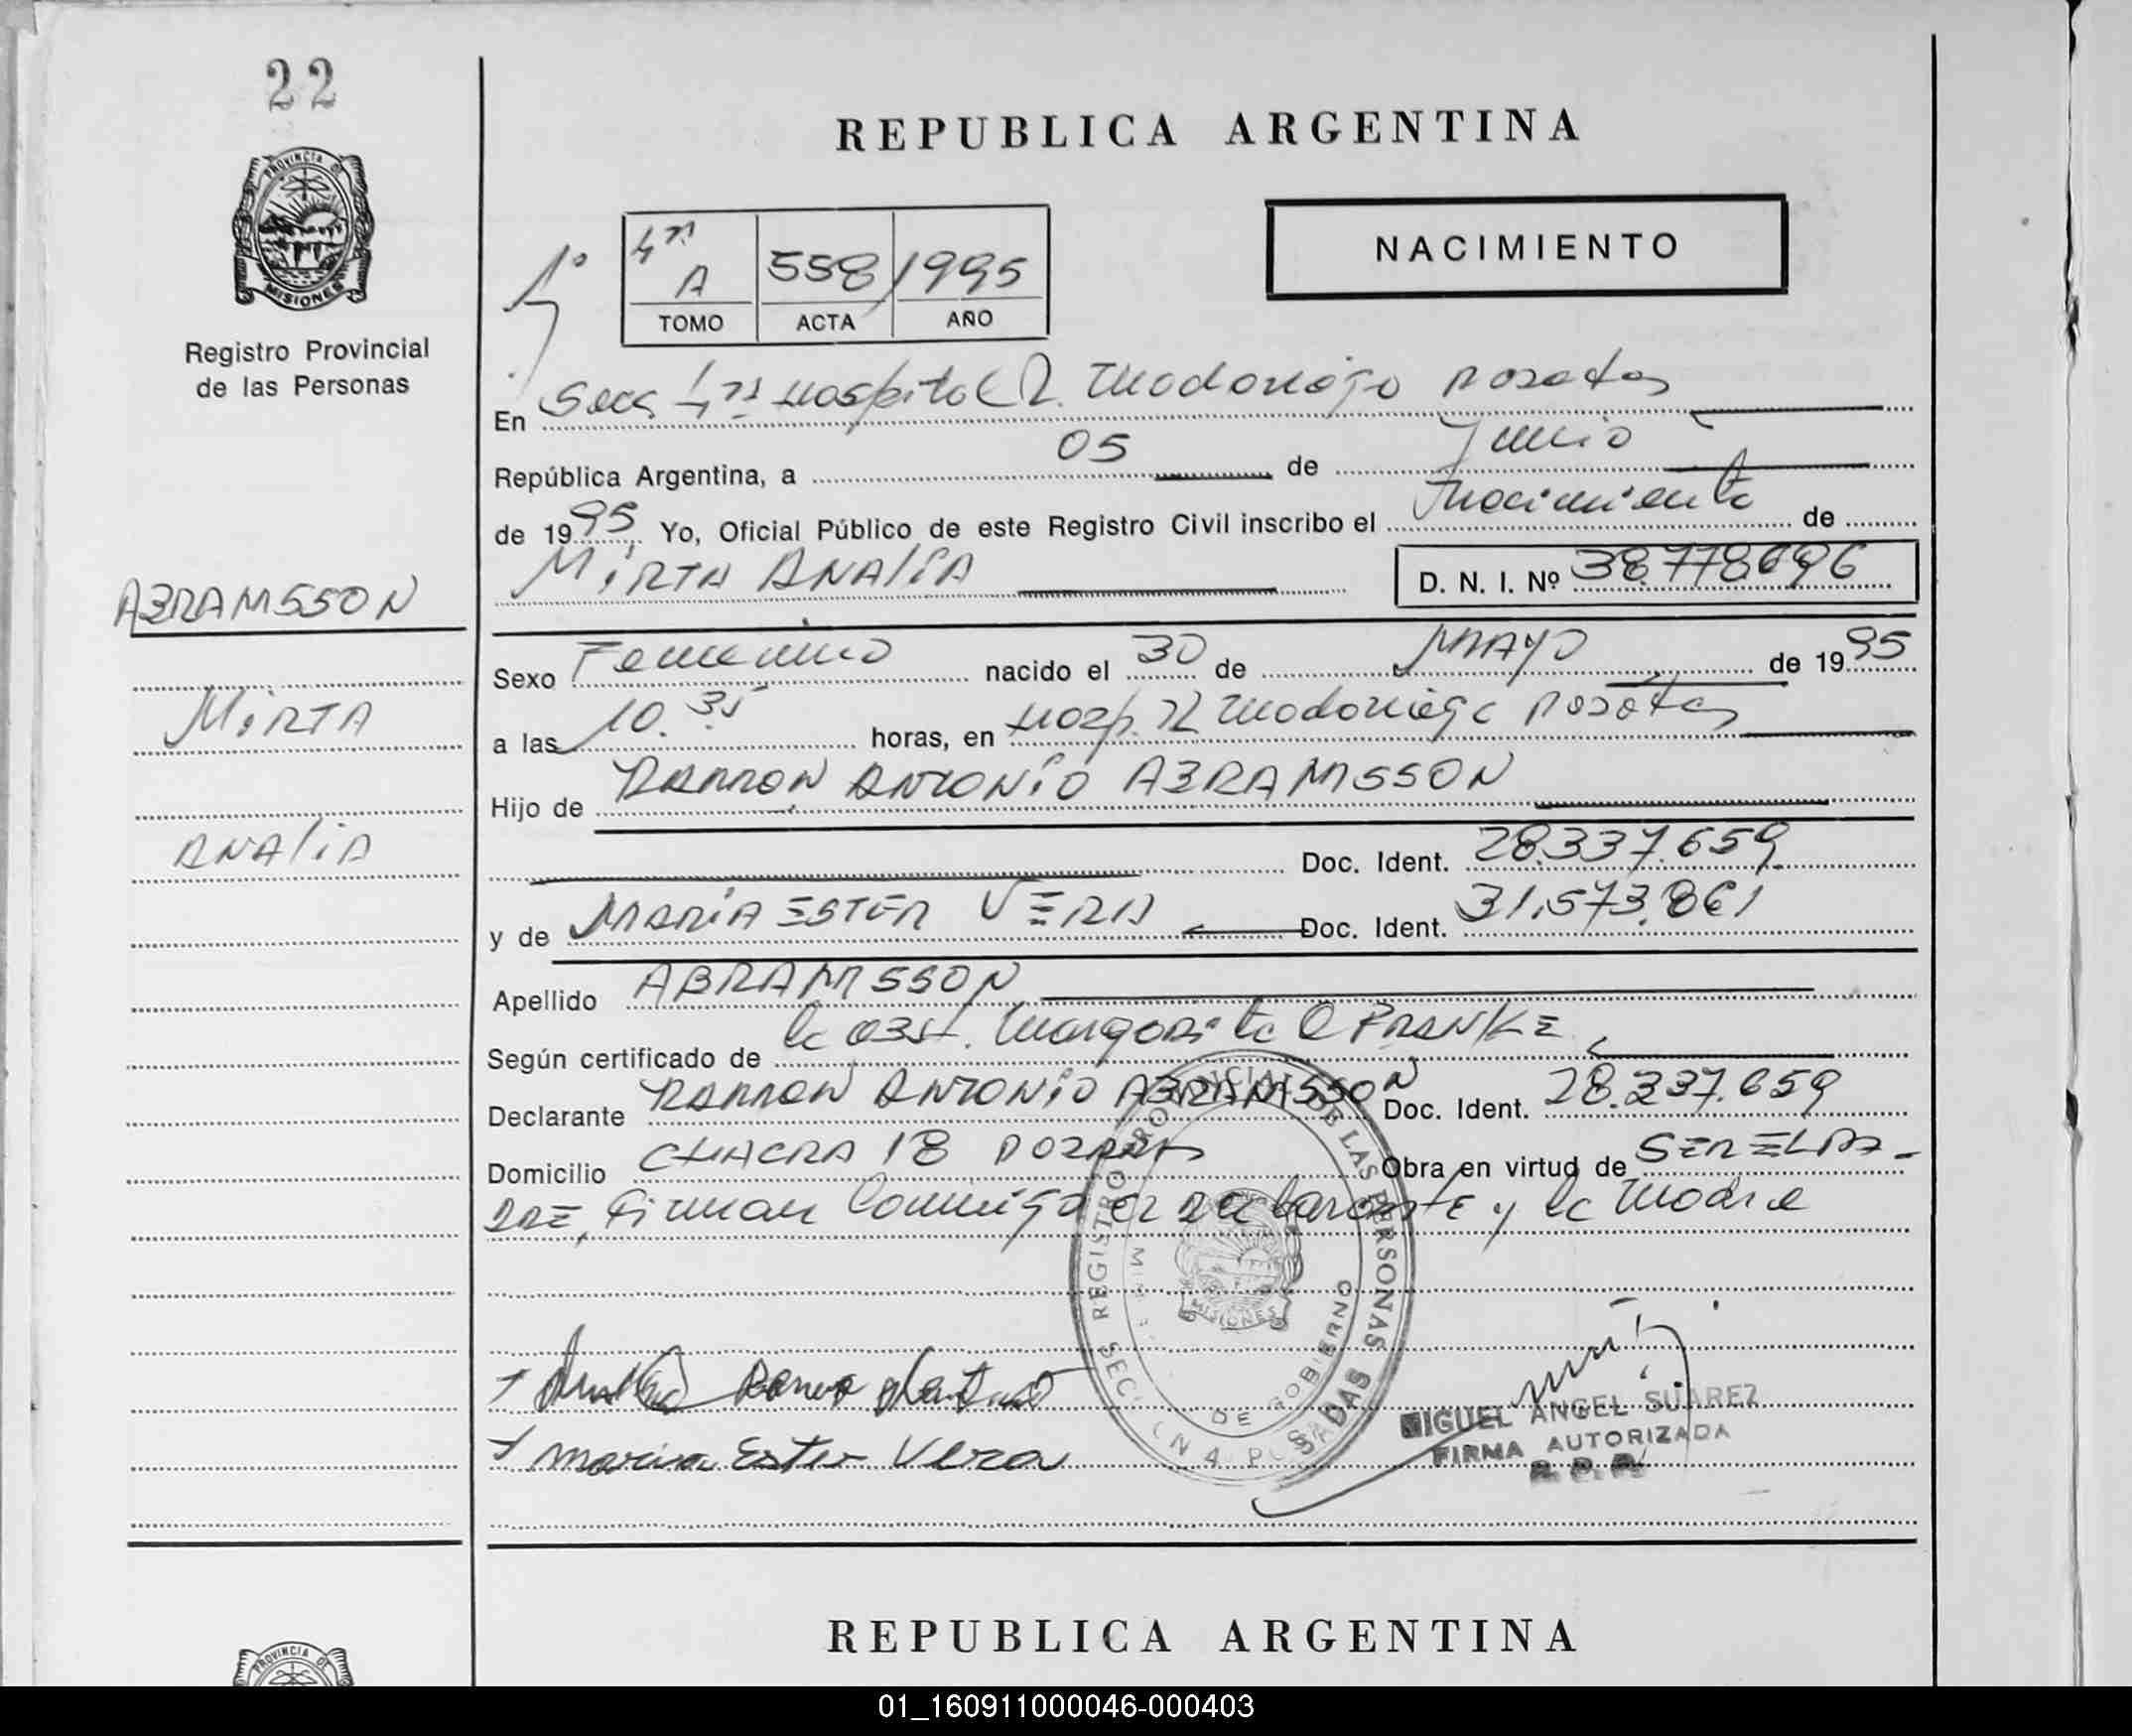 22
PROVINCIA DE
MISIONES
Registro Provincial
de las Personas
REPUBLICA ARGENTINA
NACIMIENTO
1º
4ta A 558 1995
TOMO ACTA AÑO
En Secc 4ta Hospital R. Madariaga Posadas
República Argentina, a 05 de Junio
de 1995 Yo, Oficial Público de este Registro Civil inscribo el Nacimiento de
MIRTA ANALIA D. N. I. Nº 38.778.696
ABRAMSSON
MIRTA
ANALIA
Sexo Femenino nacido el 30 de MAYO de 1995
a las 10.35 horas, en Hosp. R Madariaga Posadas
Hijo de RAMON ANTONIO ABRAMSSON
Doc. Ident. 28.337.659
y de MARIA ESTER VERA Doc. Ident. 31.573.861
Apellido ABRAMSSON
Según certificado de la OBST. Margarita R FRANKE
Declarante RAMON ANTONIO ABRAMSSON Doc. Ident. 28.337.659
Domicilio CHACRA 18 POSADAS Obra en virtud de SER EL PA-
DRE, Firman Conmigo el declarante y la Madre
REGISTRO PROVINCIAL DE LAS PERSONAS
DE GOBIERNO
MISIONES
SECCION 4 POSADAS
Ramon Antonio
Maria Ester Vera
MIGUEL ANGEL SUAREZ
FIRMA AUTORIZADA
R. P. P.
REPUBLICA ARGENTINA
PROVINCIA DE
01_160911000046-000403